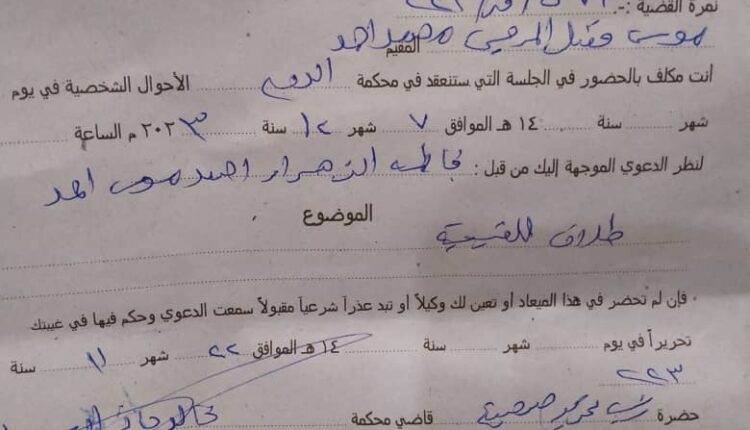 نمرة القضية :-
موسى مقبل المرضي محمد احمد
المقيم
أنت مكلف بالحضور في الجلسة التي ستنعقد في محكمة الأحوال الشخصية في يوم
شهر سنة ١٤ هـ الموافق ٧ شهر ١٢ سنة ٢٠٢٣ م الساعة
لنظر الدعوي الموجهة إليك من قبل : فاطمة الزهراء احمد موسى احمد
الموضوع
طلاق للغيبة
فإن لم تحضر في هذا الميعاد أو تعين لك وكيلاً أو تبد عذراً شرعياً مقبولاً سمعت الدعوي وحكم فيها في غيبتك
تحريراً في يوم شهر سنة ١٤ هـ الموافق ٢٢ شهر ١١ سنة
حضرة قاضي محكمة